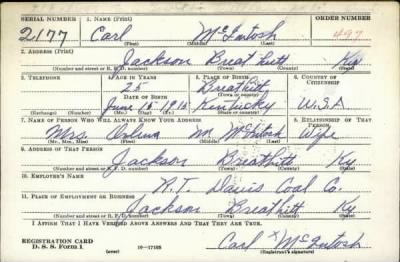 SERIAL NUMBER 1. NAME (Print) ORDER NUMBER
2177 Carl McIntosh 497
(First) (Middle) (Last)
2. ADDRESS (Print)
Jackson Breathitt Ky
(Number and street or R. F. D. number) (Town) (County) (State)
3. TELEPHONE 4. AGE IN YEARS 5. PLACE OF BIRTH 6. COUNTRY OF CITIZENSHIP
25 Breathitt
(Town or county)
DATE OF BIRTH
June 15 1915 Kentucky U.S.A
(Exchange) (Number) (Mo.) (Day) (Yr.) (State or country)
7. NAME OF PERSON WHO WILL ALWAYS KNOW YOUR ADDRESS 8. RELATIONSHIP OF THAT PERSON
Mrs. M McIntosh Wife
(Mr., Mrs., Miss) (First) (Middle) (Last)
9. ADDRESS OF THAT PERSON
Jackson Breathitt Ky
(Number and street or R. F. D. number) (Town) (County) (State)
10. EMPLOYER'S NAME
R.T. Davis Coal Co.
11. PLACE OF EMPLOYMENT OR BUSINESS
Jackson Breathitt Ky
(Number and street or R. F. D. number) (Town) (County) (State)
I AFFIRM THAT I HAVE VERIFIED ABOVE ANSWERS AND THAT THEY ARE TRUE.
REGISTRATION CARD
D. S. S. Form 1 (over) 16—17105 Carl x McIntosh
(Registrant's signature)